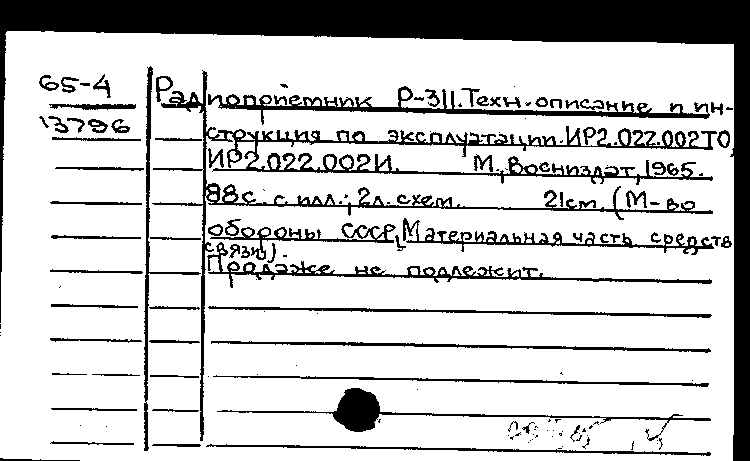 65-4 Радиоприемник Р-311. Техн. описание и ин-
13796 струкция по эксплуатации. ИР2.022.002ТО,
ИР2.022.002И. М., Воениздат, 1965.
88с. с илл.; 2л. схем. 21см. (М-во
обороны СССР. Материальная часть средств
связи).
Продаже не подлежит.